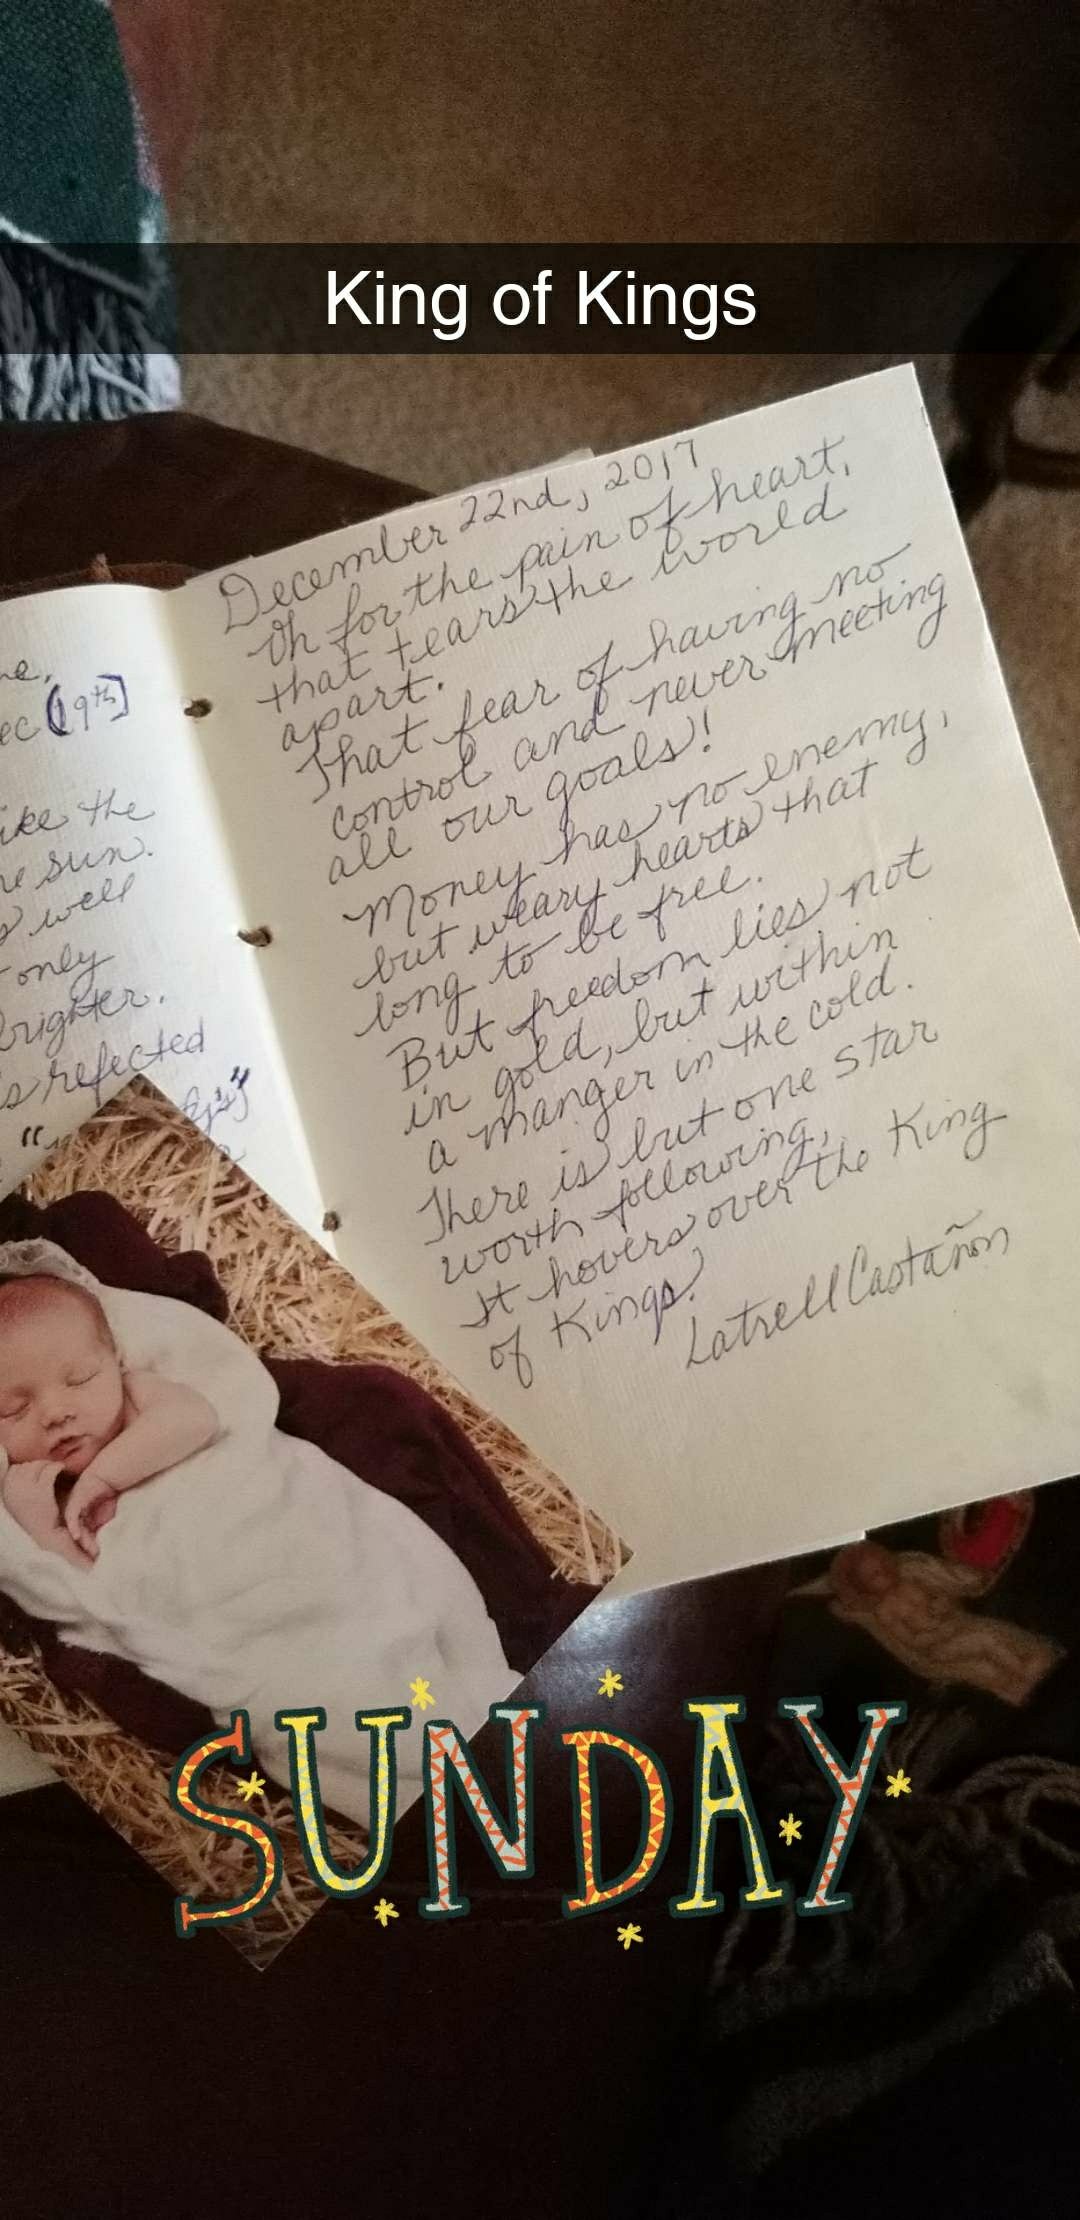 King of Kings
December 22nd, 2017
Oh for the pain of heart,
that tears the world
apart.
That fear of having no
control and never meeting
all our goals!
Money has no enemy,
but weary hearts that
long to be free.
But freedom lies not
in gold, but within
a manger in the cold.
There is but one star
worth following,
It hovers over the King
of Kings.
Latrell Castañon
[19th]
the
sun.
well
only
brighter.
refected
SUNDAY